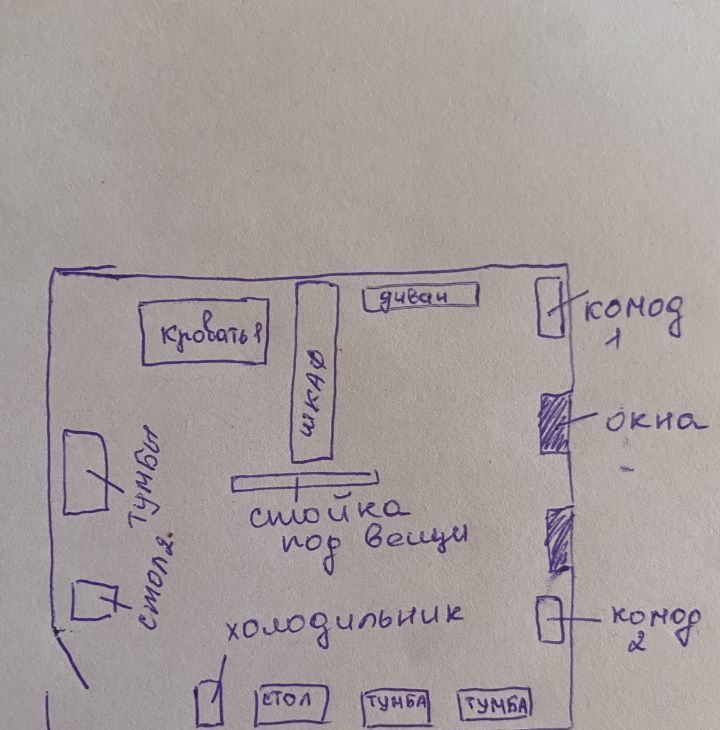 диван
кровать 1
комод
1
шкаф
окна
тумбы
стойка
под вещи
стол 2.
холодильник
комод
2
стол
тумба
тумба